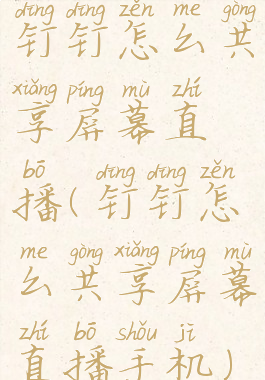 dīng dīng zěn me gòng
钉钉怎么共
xiǎng píng mù zhí
享屏幕直
bō dīng dīng zěn
播(钉钉怎
me gòng xiǎng píng mù
么共享屏幕
zhí bō shǒu jī
直播手机)